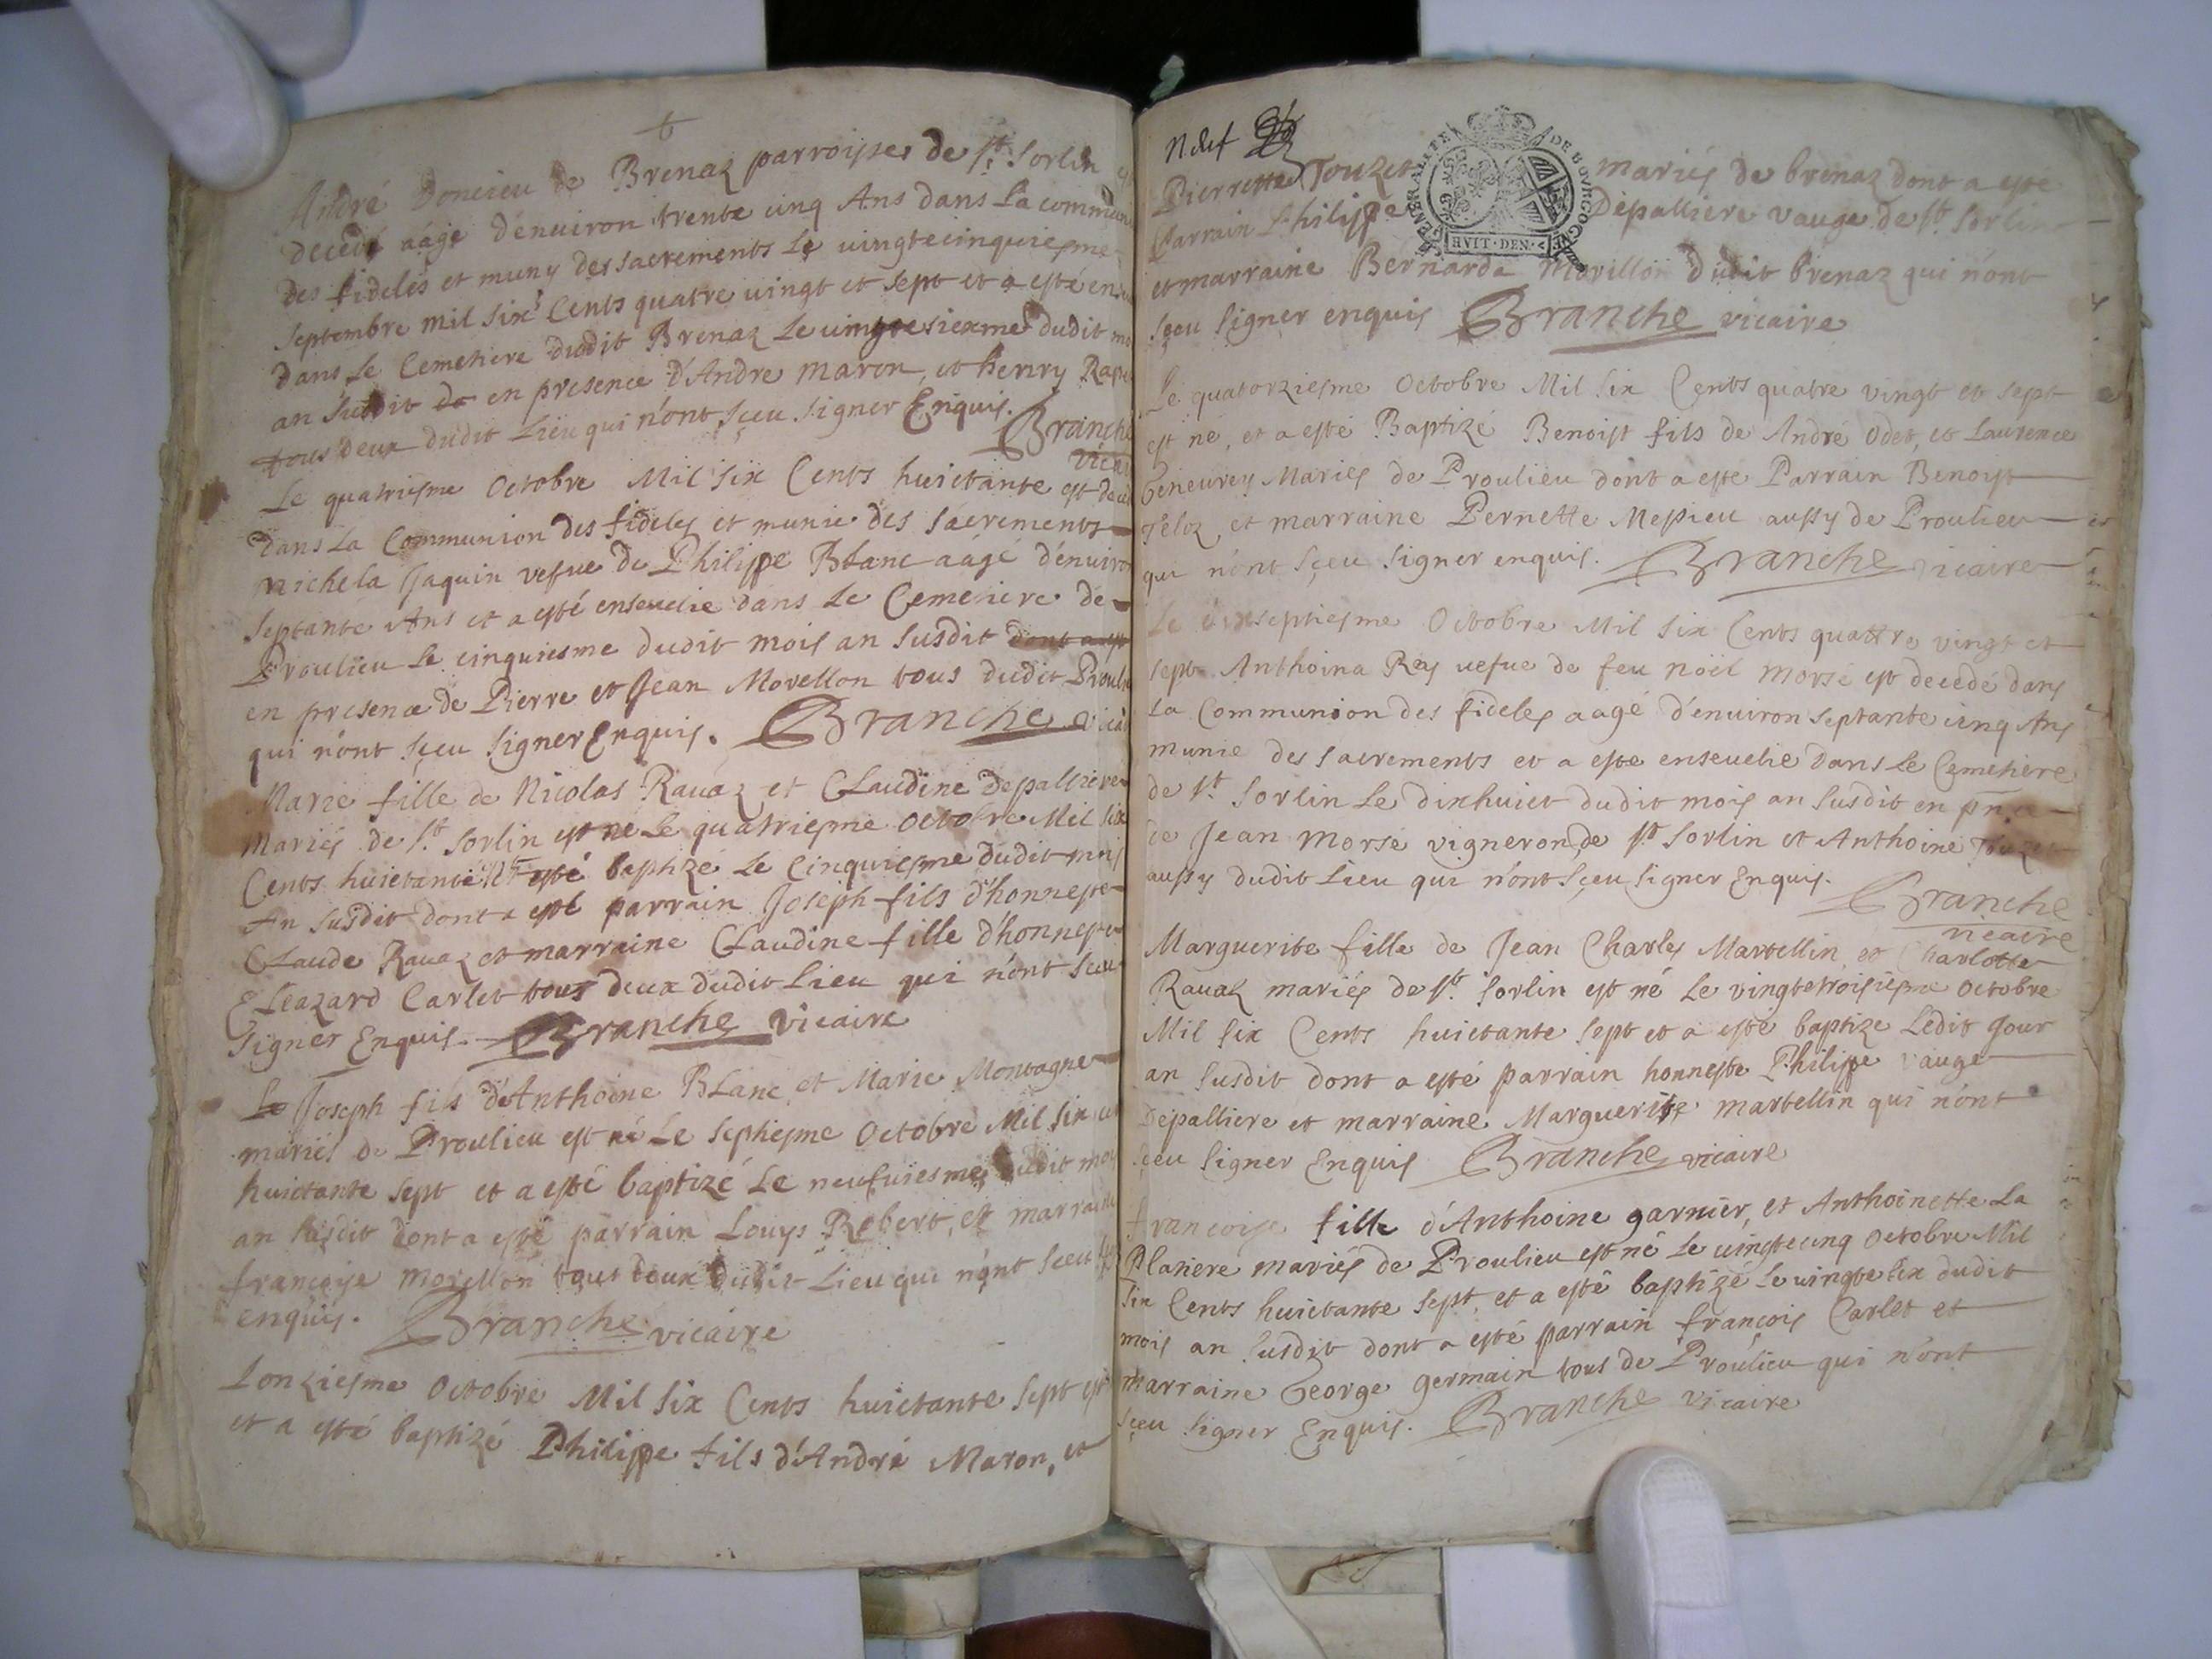 André Doncieu de Brenaz parroisses de St. Sorlin
decedé aagé d'enuiron trente cinq Ans dans La commun
des fideles et muny des sacrements Le uingtecinquiesme
septembre mil six Cents quatre uingt et sept et a esté en
dans Le Cemetiere dudit Brenaz Le uingtesiexme dudit
an susdit en presence d'Andre maron, et henry
tous deux dudit Lieu qui n'ont sçeu signer Enquis. Branche
vica
Le quatriesme Octobre Mil six Cents huictante est
dans La Communion des fideles et munie des sacrements
michela Jaquin vefue de Philippe Blanc aâgé d'enuiron
septante Ans et a esté enseuelie dans Le Cemetiere de
Proulieu Le cinquiesme dudit mois an susdit dont a est
en presence de Pierre et Jean Morellon tous dudit Proulie
qui n'ont sçeu signer Enquis. Branche vica
Marie fille de Nicolas Rauaz et Claudine Depalliere
Mariés de St. Sorlin est né Le quatriesme Octobre Mil six
Cents huictante esté baptizé Le Cinquiesme dudit mois
An susdit dont a esté parrain Joseph fils d'honneste
Claude Rauaz et marraine Claudine fille d'honneste
Eleazard Carlet tous deux dudit Lieu qui n'ont sceu
signer Enquis. Branche vicaire
Le Joseph fils d'Anthoine Blanc et Marie Montagne
mariés de Proulieu est né Le septiesme Octobre Mil six
huictante sept et a esté baptizé Le neufuiesme dudit
an susdit dont a esté parrain Louys Rebert, et marraine
françoise morellon tous deux dudit Lieu qui n'ont sceu
enquis. Branche vicaire
Lonziesme Octobre Mil six Cents huictante sept est
et a esté baptizé Philippe fils d'André Maron, et
GENERALITE DE BOVRGOGNE
HVIT·DEN·
Pierrette Touzet mariés de brenaz dont a esté
Parrain Philippe Dépalliere vauge de St. Sorlin
et marraine Bernarde Morillon dudit brenaz qui n'ont
sçeu signer enquis Branche vicaire
Le quatorziesme Octobre Mil six Cents quatre vingt et sept
est né, et a esté Baptizé Benoist fils de André Odet, et Laurence
Geneurey Mariés de Proulieu dont a esté Parrain Benoist
Teloz, et marraine Pernette Mepieu aussy de Proulieu
qui n'ont sçeu signer enquis. Branche vicaire
Le dixseptiesme Octobre Mil six Cents quattre vingt et
sept Anthoina Rey uefue de feu noël morse est decedé dans
La Communion des fideles aagé d'enuiron septante cinq Ans
munie des sacrements et a esté enseuelie dans Le Cemetiere
de St. Sorlin Le dixhuict dudit mois an susdit en pnce
de Jean morse vigneron de St Sorlin et Anthoine Touzet
aussy dudit Lieu qui n'ont sçeu signer Enquis.
Branche
vicaire
Marguerite fille de Jean Charles Martellin, et Charlotte
Rauaz mariés de St. Sorlin est né Le vingtetroisiesme Octobre
Mil six Cents huictante sept et a esté baptizé Ledit Jour
an susdit dont a esté parrain honneste Philippe vauge
Depalliere et marraine Marguerite martellin qui n'ont
sçeu signer Enquis Branche vicaire
francoise fille d'Anthoine garnier, et Anthoinette La
Planere mariés de Proulieu est né Le uingtecinq Octobre Mil
six Cents huictante sept, et a esté baptizé Le uingtesix dudit
mois an susdit dont a esté parrain françois Carlet et
marraine George germain tous de Proulieu qui n'ont
sçeu signer Enquis. Branche vicaire